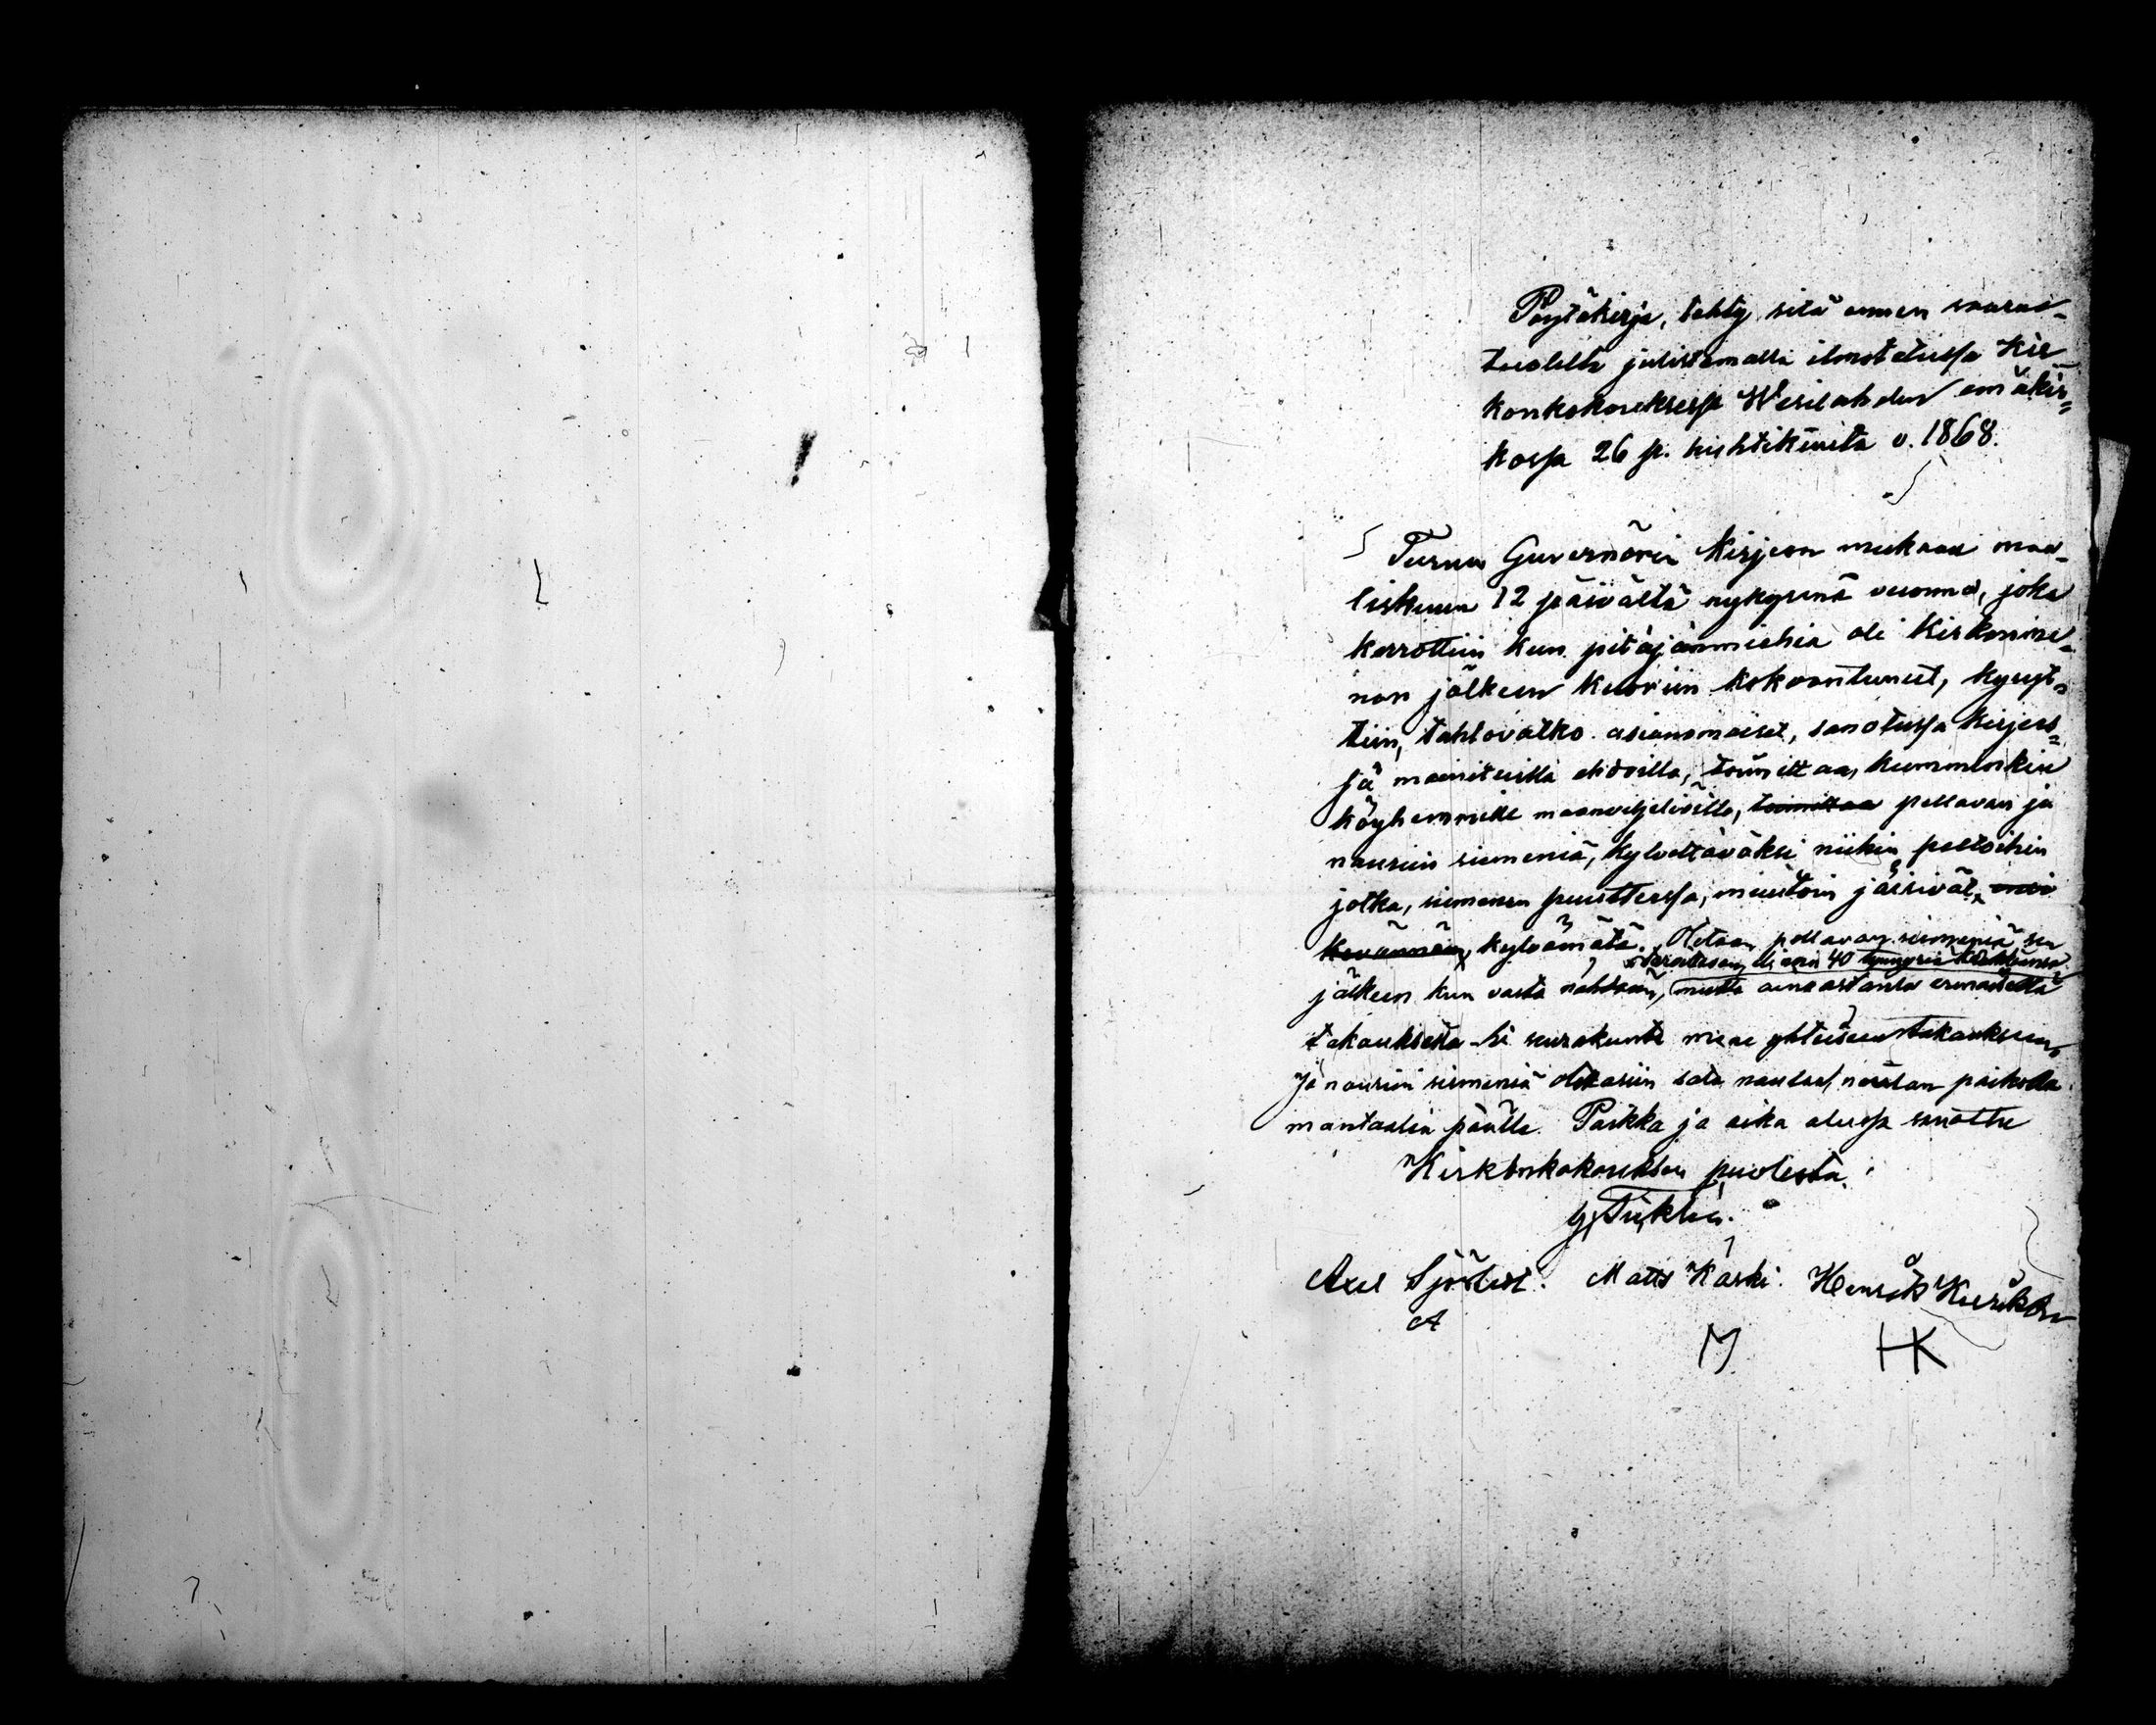 Pöytäkirja, tehty sitä ennen saarna-
tuolilta julistamalla ilmotetussa Kir-
konkokouksessa Wesilahden emäkir=
kossa 26 p. huhtikuuta v. 1868.
Turun Guvernörin Kirjeen mukaan maa-
liskuun 12 päivältä nykysenä vuonna, joka
kerrottiin kun pitäjänmiehiä oli Kirkonme-
non jälkeen Kuoriin kokoontuneet, kysyt=
tiin, tahtovatko asianomaiset, sanotussa kirjees=
sä mainituilla ehdoilla, toimittaa, kumminkin
köyhemmille maanviljeliöille, toimittaa pellavan ja
nauriin siemeniä, kylvettäväksi niihin peltoihin
jotka, siemenen puuttessa, muutoin jäisivät
kylvämätä. Otetaan pellavan siemeniä sen
40 tynnyriä
jälkeen kun vasta nähdään, mutta ainoastansa erinäisellä
takauksella - Ei seurakunta mene yhteiseen takaukseen.
Ja nauriin siemeniä otettasiin sata naulaa, neljän paikolla
mantaalin päälle. Paikka ja aika alussa sanottu
Kirkonkokouksen puolesta.
Axel Sjöstedt. Matts Kärki. Henrik Kurikka
A
M
HK